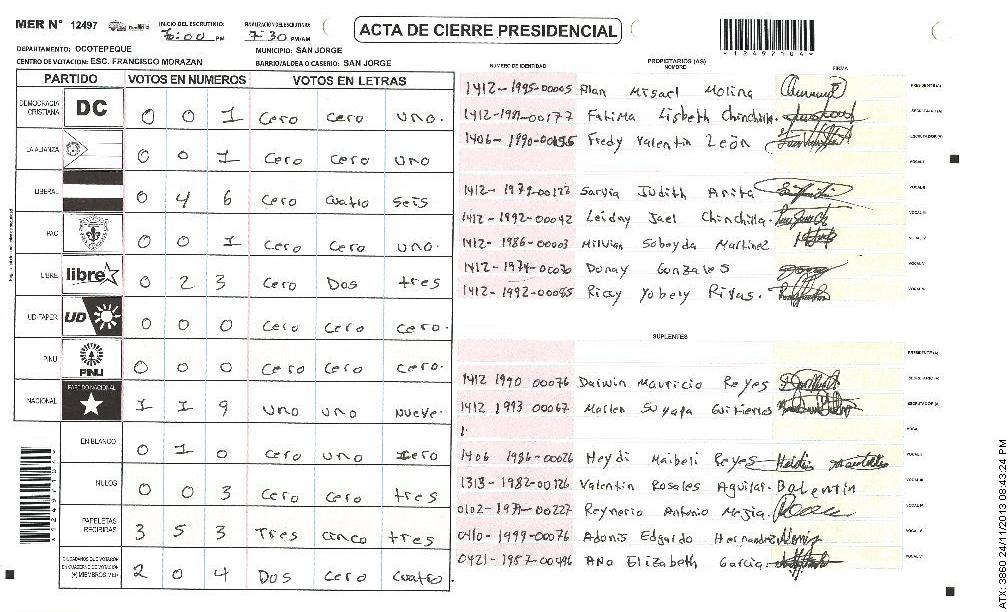 MER N° 12497
INICIO DEL ESCRUTINIO: PM
FINALIZACION DEL ESCRUTINIO: 7:30 PM/AM
ACTA DE CIERRE PRESIDENCIAL
*12497104*
DEPARTAMENTO: OCOTEPEQUE
MUNICIPIO: SAN JORGE
CENTRO DE VOTACION: ESC. FRANCISCO MORAZAN
BARRIO/ALDEA O CASERIO: SAN JORGE
PARTIDO VOTOS EN NUMEROS VOTOS EN LETRAS
DEMOCRACIA CRISTIANA DC 0 0 1 Cero Cero uno.
LA ALIANZA 0 0 1 Cero Cero uno
LIBERAL 0 4 6 Cero Cuatro seis
PAC 0 0 1 Cero Cero uno.
LIBRE libre 0 2 3 Cero Dos tres
UD-FAPER UD 0 0 0 Cero Cero Cero.
PINU PINU 0 0 0 Cero Cero Cero.
NACIONAL PARTIDO NACIONAL 1 1 9 uno uno nueve.
EN BLANCO 0 1 0 Cero uno cero
NULOS 0 0 3 Cero Cero tres
PAPELETAS RECIBIDAS 3 5 3 Tres cinco tres
CIUDADANOS QUE VOTARON EN CUADERNO DE VOTACION (+) MIEMBROS MER 2 0 4 Dos Cero Cuatro.
NUMERO DE IDENTIDAD PROPIETARIOS (AS) NOMBRE FIRMA
1412-1995-00005 Alan Misael Molina PRESIDENTE (A)
1412-1991-00177 Fatima Lisbeth Chinchilla. SECRETARIO (A)
1406-1990-00195 Fredy Valentin León ESCRUTADOR (A)
VOCAL I
1412-1979-00122 Sarvia Judith Arita VOCAL II
1412-1992-00042 Leidny Jael Chinchilla. VOCAL III
1412-1986-00003 Milvian Soboyda Martinez VOCAL IV
1412-1974-00070 Dunay Gonzales VOCAL V
1412-1992-00085 Ricay Yobery Rivas. VOCAL VI
SUPLENTES
PRESIDENTE (A)
1412 1990 00076 Darwin Mauricio Reyes SECRETARIO (A)
1412 1993 00067 Marlen Suyapa Gutierres ESCRUTADOR (A)
1 VOCAL I
1406 1986-00026 Heydi Maibeli Reyes VOCAL II
1313-1982-00126 Valentin Rosales Aguilar. Balentin VOCAL III
0102-1971-00227 Reynerio Antonio Mejia. VOCAL IV
0410-1999-00076 Adonis Edgardo Hernandez VOCAL V
0421-1957-00496 Ana Elizabeth Garcia VOCAL VI
ATX: 3860 24/11/2013 08:43:24 PM